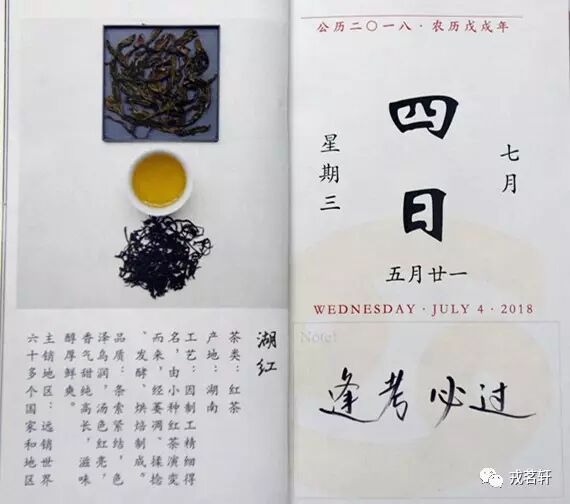 湖红
茶类：红茶
产地：湖南
工艺：因制工精得
名，由小种红茶演变
而来，经萎凋、揉捻
、发酵、烘焙制成。
品质：条索紧结，色
泽乌润，汤色红亮，
香气甜纯高长，滋味
醇厚鲜爽。
主销地区：远销世界
六十多个国家和地区
公历二〇一八·农历戊戌年
七月
四日
星期三
五月廿一
WEDNESDAY·JULY 4·2018
Note!
逢考必过
戎茗轩